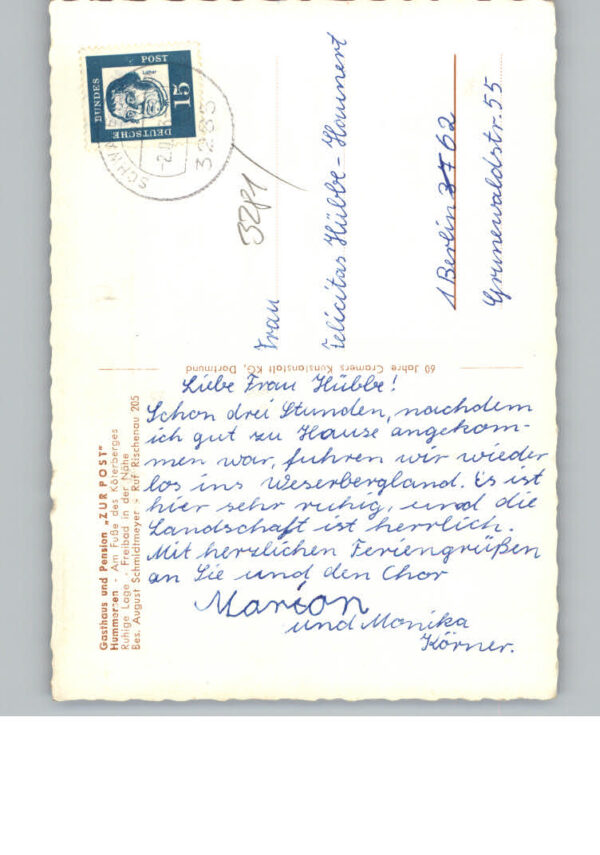 DEUTSCHE
BUNDES
POST
15
Luther
3283
3281
Frau
Felicitas Hübbe-Haunert
1 Berlin 37 62
Grunewaldstr. 55
60 Jahre Cramers Kunstanstalt KG, Dortmund
Gasthaus und Pension „ZUR POST"
Hummersen - Am Fuße des Köterberges
Ruhige Lage - Freibad in der Nähe
Bes. August Schmidtmeyer - Ruf Rischenau 205
Liebe Frau Hübbe!
Schon drei Stunden, nachdem
ich gut zu Hause angekom-
men war, fuhren wir wieder
los ins Weserbergland. Es ist
hier sehr ruhig, und die
Landschaft ist herrlich.
Mit herzlichen Feriengrüßen
an Sie und den Chor
Marion
und Monika
Körner.